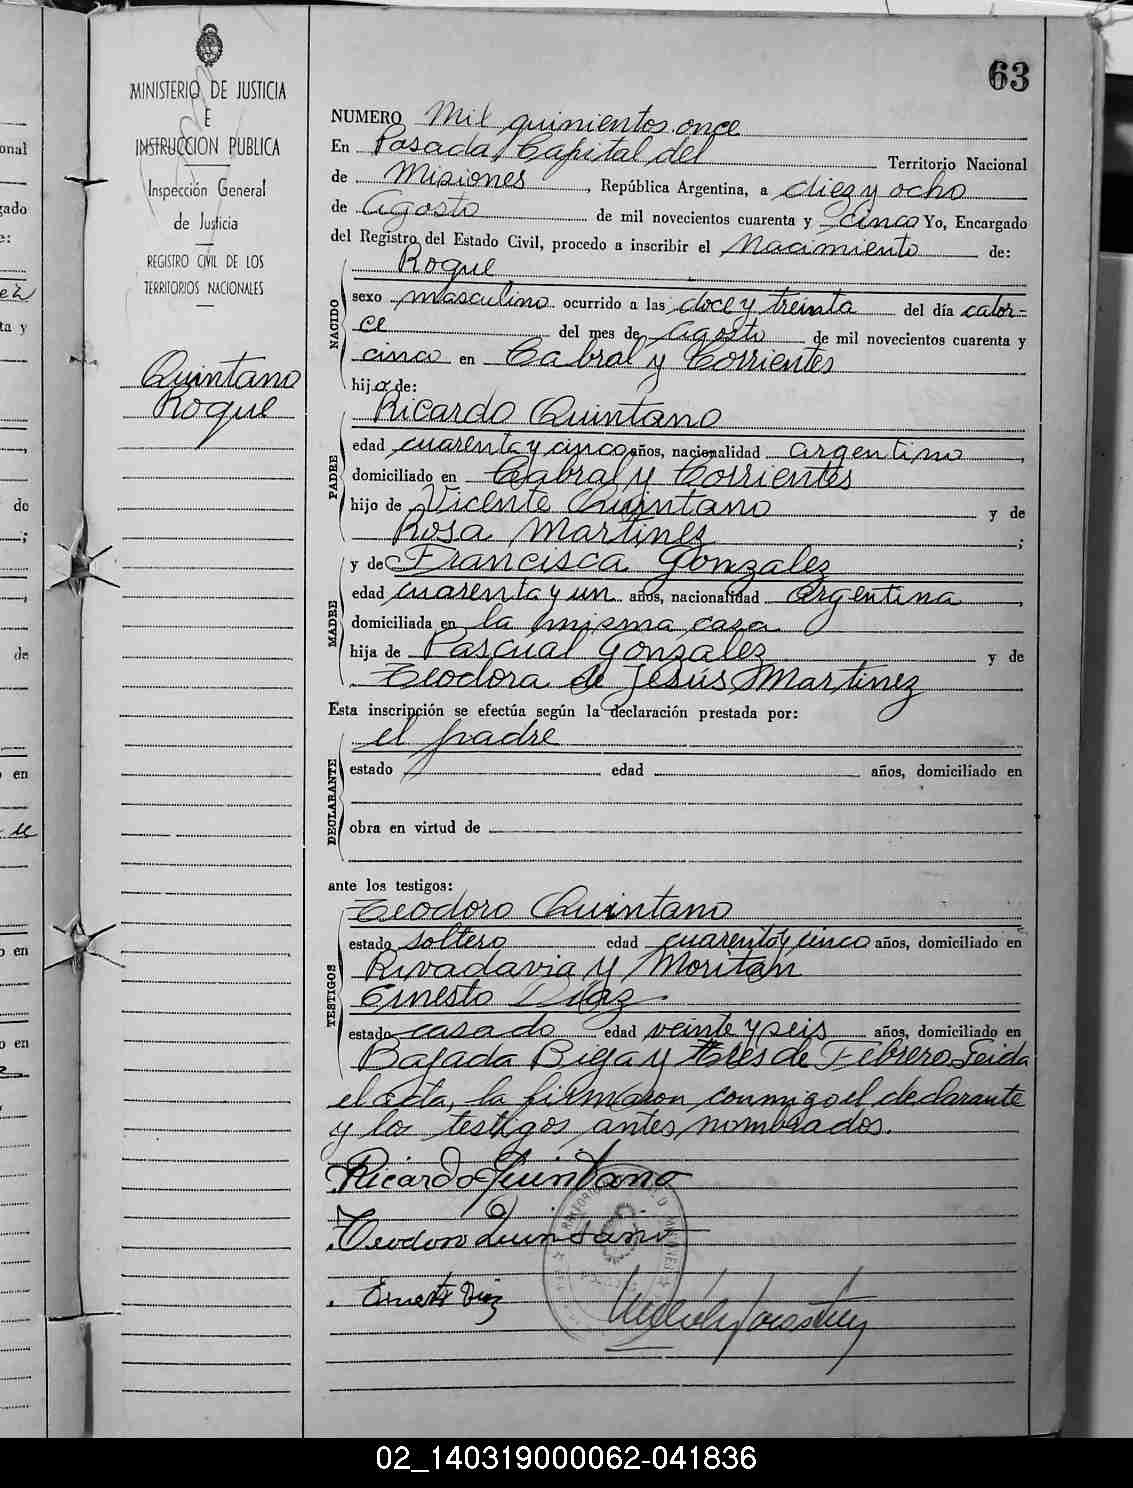 63
MINISTERIO DE JUSTICIA
E
INSTRUCCION PUBLICA
Inspección General
de Justicia
REGISTRO CIVIL DE LOS
TERRITORIOS NACIONALES
Quintano
Roque
NUMERO Mil quinientos once
En Posadas, Capital del Territorio Nacional
de Misiones, República Argentina, a diez y ocho
de Agosto de mil novecientos cuarenta y cinco Yo, Encargado
del Registro del Estado Civil, procedo a inscribir el Nacimiento de:
NACIDO
Roque
sexo masculino ocurrido a las doce y treinta del día cator=
ce del mes de Agosto de mil novecientos cuarenta y
cinco en Cabral y Corrientes
hijo de:
PADRE
Ricardo Quintano
edad cuarenta y cinco años, nacionalidad argentino,
domiciliado en Cabral y Corrientes
hijo de Vicente Quintano y de
Rosa Martinez;
MADRE
y de Francisca Gonzalez
edad cuarenta y un años, nacionalidad Argentina,
domiciliada en la misma casa
hija de Pascual Gonzalez y de
Teodora de Jesús Martinez
Esta inscripción se efectúa según la declaración prestada por:
DECLARANTE
el padre
estado edad años, domiciliado en
obra en virtud de
ante los testigos:
TESTIGOS
Teodoro Quintano
estado soltero edad cuarenta y cinco años, domiciliado en
Rivadavia y Moritan
Ernesto Diaz
estado casado edad veinte y seis años, domiciliado en
Bajada Bieja y Tres de Febrero. Leida
el acta, la firmaron conmigo el declarante
y los testigos antes nombrados.
Ricardo Quintano
Teodoro Quintano
Ernesto Diaz
02_140319000062-041836